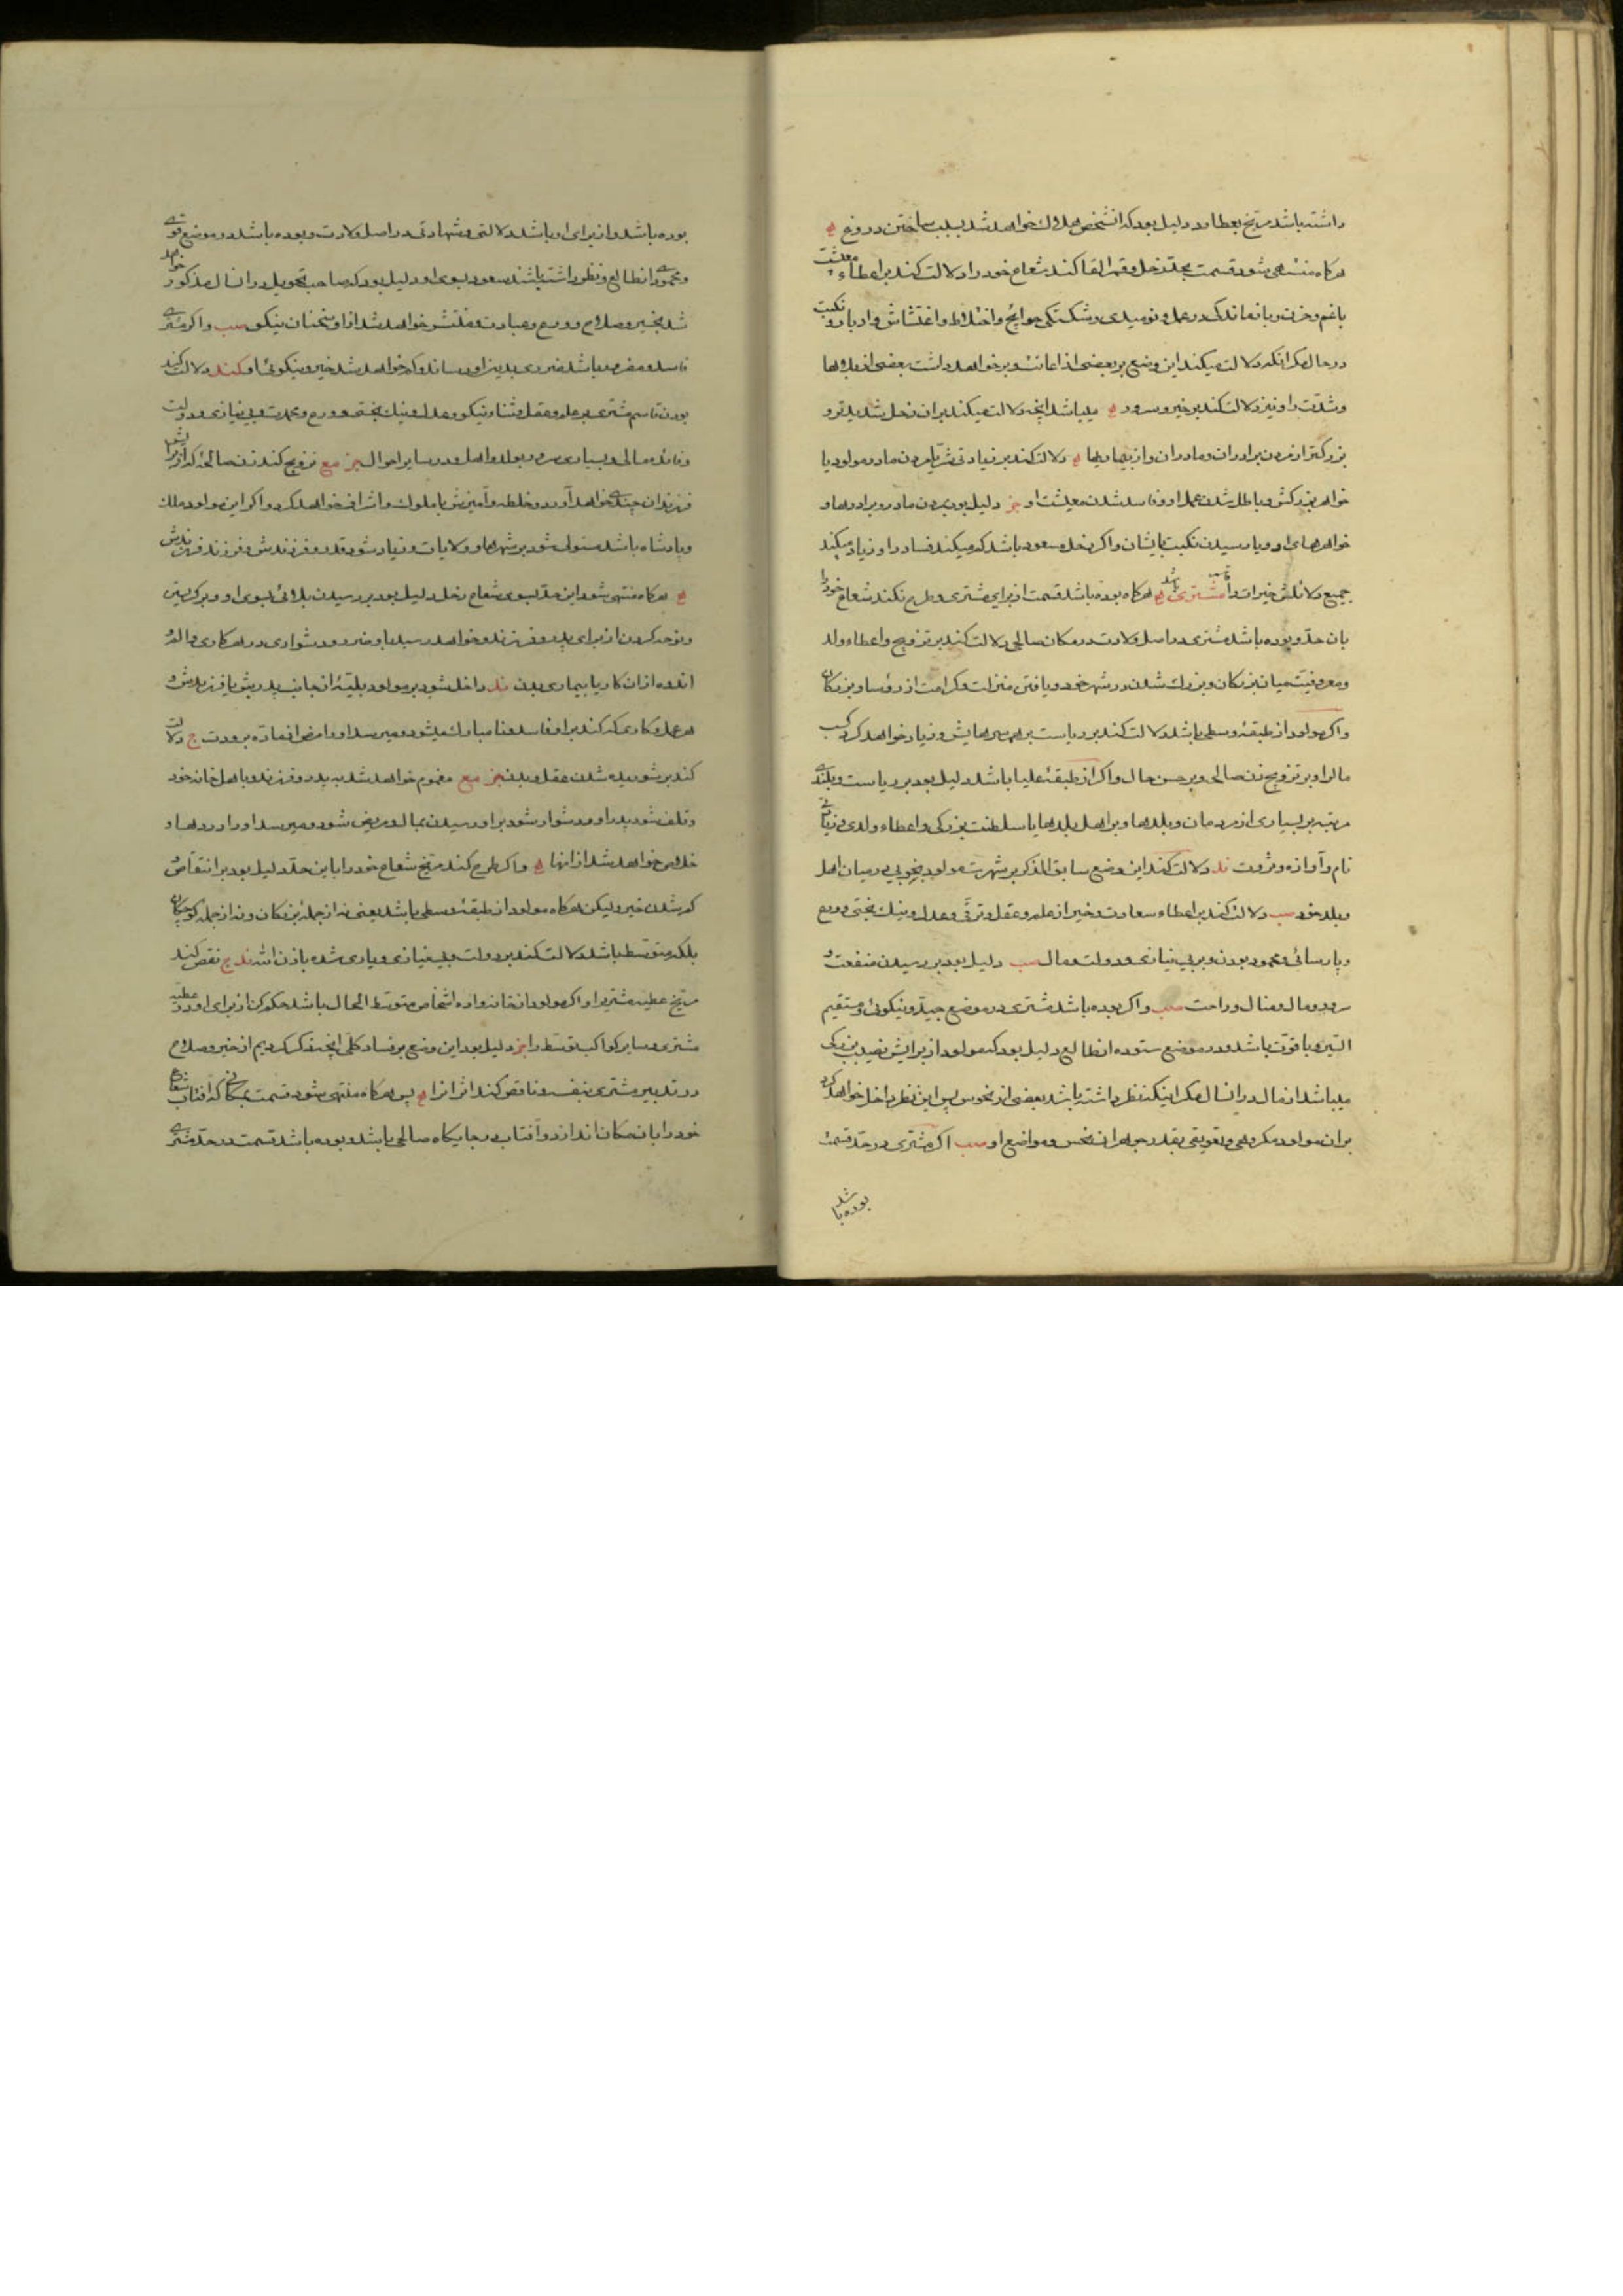 داشته باشد مریخ بعطارد دلیل بود که انشخص هلاك خواهد شد بسبب ساختن دروغ
هرکاه منتهی شود قسمت بحد زحل و قمر القا کند شعاع خود را دلالت کند بر اعطاء معیشت
باغم و حزن و بازماندك در عمل و نومیدی و شکستکی حوایج و اختلاط و اغتشاش و ادبار و نکبت
در حال مکر انکه دلالت میکند این وضع بر بعضی از اعانت و بر خواهد داشت بعضی از
و شدت را و نیز دلالت کند بر خیر و سرور میباشد انچه دلالت میکند بران زحل شدیدتر و
بزرکتر از مردن برادران و مادران و از بیماریها دلالت کند بر زیادتی شر یا مردن مادر مولود یا
خواهر بزرکش و باطل شدن عمل او و فاسد شدن معیشت او جز دلیل بود بر مردن مادر و برادرها و
خواهرهای او و یا رسیدن نکبت بایشان و اکر زحل مسعود باشد کم میکند فساد را و زیاد میکند
جمیع دلائلش خیرات را مشتری هرکاه بوده باشد قسمت از برای مشتری و طرح نکند شعاع خود را
بان حد و بوده باشد مشتری در اصل ولادت در مکان صالحی دلالت کند بر تزویج و اعطاء ولد
و معروفیت میان بزرکان و بزرك شدن در شهر خود و یافتن منزلت و کرامت از رؤسا و بزرکان
و اکر مولود از طبقهٔ وسطی باشد دلالت کند بر ریاست بر همسرهایش و زیاد خواهد کرد کسب
مال را و بر تزویج زن صالحی و بر حسن حال و اکر از طبقهٔ علیا باشد دلیل بود بر ریاست و بلندی
مرتبه بر بسیاری از مردمان و بلدها و بر اهل بلدها یا سلطنت بزرکی و اعطاء ولدی و زیاتی
نام و آوازه و ثروت ند دلالت کند این وضع سابق الذکر بر شهرت مولود بخوبی در میان اهل
و بلد خود سب دلالت کند بر اعطاء سعادت و خیر از علم و عقل و ترقی و عدل و نیك بختی و ورع
و پارسائی و محمود بودن و بر بی نیازی و دولت و مال سب دلیل بود بر رسیدن منفعت و
سرور و مال و منال و راحت سب و اکر بوده باشد مشتری در موضع جید و نیکوئی و مستقیم
السیر و با قوت باشد و در موضع ستوده از طالع دلیل بود که مولود از برایش نصیب بزرکی
میباشد از مال در انسال مکر اینکه نظر داشته باشد بعضی از نحوس پس این نظر داخل خواهد کرد
بران مولود مکروهی و تعویقی بقدر جوهر ان نحس و مواضع او سب اکر مشتری در حد قسمت
بوده باشد
بوده باشد و از برای او باشد دلالتی و شهادتی در اصل ولادت و بوده باشد در موضع قوی
و محمود از طالع و نظر داشته باشند سعود بسوی او دلیل بود که صاحب تحویل در انسال مذکور خواهد
شد بخیر و صلاح و ورع و عبادت و منتشر خواهد شد از او سخنان نیکو سب و اکر مشتری
فاسد و مضر باشد ضرری بدین او رساند و کم خواهد شد خیر و نیکوئی او کند دلالت کند
بودن قاسم مشتری بر علم و عقل و ثناء نیکو و عدل و نیك بختی و ورع و محمدت و بی نیازی و دولت
و فائده مالی و بسیاری سرور بولد و اهل و در سایر احوال جز مع تزویج کند زن صالحهٔ که از برایش
فرزندان چند خواهد آورد و خلطه و آمیزش با ملوك و اشراف خواهد کرد و اکر این مولود ملك
و پادشاه باشد مستولی شود بر شهرها و ولایات و زیاد شود قدر و فرزندش و فرزند فرزندش
هرکاه منتهی شود این حد بسوی شعاع زحل دلیل بود بر رسیدن بلائی بسوی او و بر کریستن
و نوحه کردن از برای پدر و فرزند و خواهد رسید باو ضرر و دشواری در هر کاری و الم و
اندوه از ان کار یا بیماری بدن ند داخل شود بر مولود بلیهٔ از جانب پدرش یا فرزندش و
هر عمل و کاری که کند بر او فاسد و نامبارك میشود و میرسد او را مرض از ماده برودت ج دلالت
کند بر شوریده شدن عقل و بدن جز مع مغموم خواهد شد به پدر و فرزند و با اهل خانه خود
و تلف شود پدر او و دشوار شود بر او رسیدن بمال و مریض شود و میرسد او را دردها و
خلاص خواهد شد از انها و اکر طرح کند مریخ شعاع خود را باین حد دلیل بود بر انتقاص و
کم شدن خیر ولیکن هرکاه مولود از طبقهٔ وسطی باشد یعنی نه از جمله بزرکان و نه از جمله کوچکان
بلکه متوسط باشد دلالت کند بر دولت و بی نیازی و یاری شده باذن الله ند ج نقص کند
مریخ عطیه مشتری را و اکر مولود از خانواده اشخاص متوسط الحال باشد حکم کن از برای او در عطیه
مشتری و سایر کواکب توسط را جز دلیل بود این وضع بر فساد کلی انچه ذکر کردیم از خیر و صلاح
در تدبیر مشتری بنفسه و ناقص کند اثر انرا پس هرکاه منتهی شود قسمت بمکانی که آفتاب شعاع
خود را بان مکان اندازد و آفتاب در جایکاه صالحی باشد و بوده باشد قسمت در حد مشتری